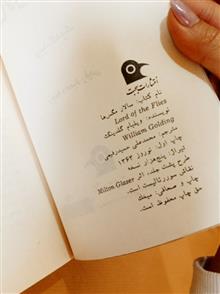 انتشارات بهجت
نام کتاب: سالار مگس‌ها
Lord of the Flies
نویسنده: ویلیام گلدینگ
William Golding
مترجم: محمدعلی حمیدرفیعی
چاپ اول: نوروز ۱۳۶۳
تیراژ: پنج‌هزار نسخه
طرح پشت جلد: اثر Milton Glaser
نقاش سوررئالیست است.
چاپ و صحافی: میخک
حق چاپ محفوظ است.